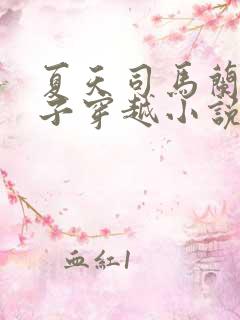 夏天司馬蘭
子穿越小說
血紅1